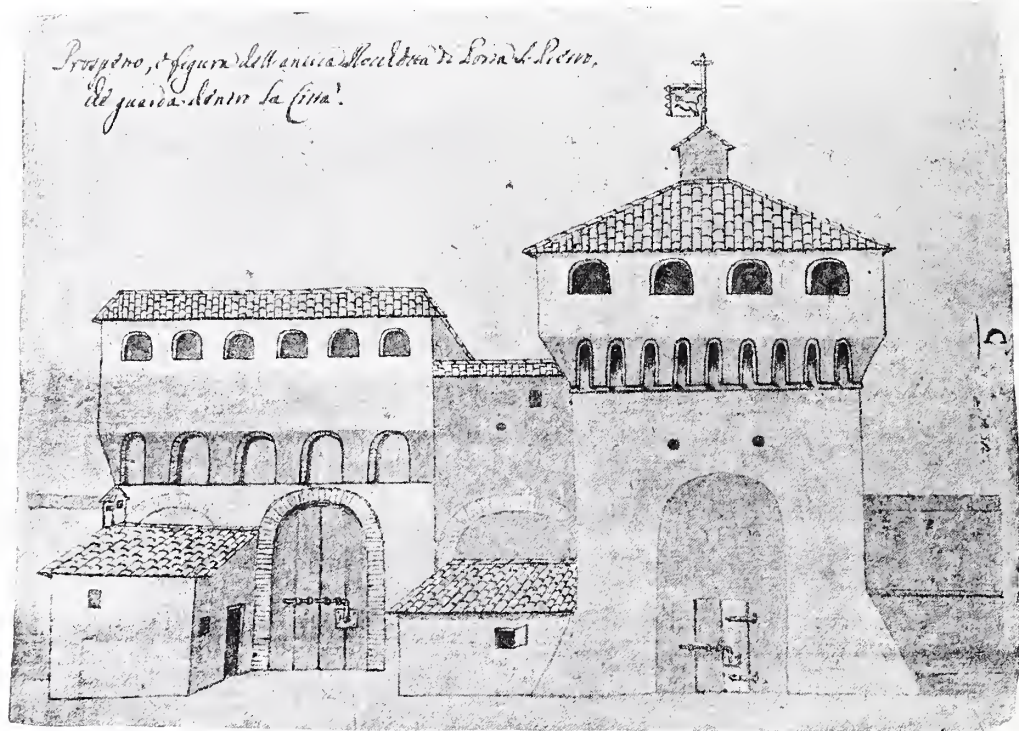 Prospetto, e figura dell'antica Rocchetta di Porta S. Pietro,
che guarda dentro la Città.